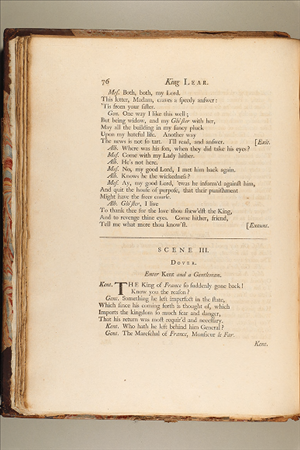 76 King LEAR.
Mes. Both, both, my Lord.
This letter, Madam, craves a speedy answer:
'Tis from your sister.
Gon. One way I like this well;
But being widow, and my Glo'ster with her,
May all the building in my fancy pluck
Upon my hateful life. Another way
The news is not so tart. I'll read, and answer. [Exit.
Alb. Where was his son, when they did take his eyes?
Mes. Come with my Lady hither.
Alb. He's not here.
Mes. No, my good Lord, I met him back again.
Alb. Knows he the wickedness?
Mes. Ay, my good Lord, 'twas he inform'd against him,
And quit the house of purpose, that their punishment
Might have the freer course.
Alb. Glo'ster, I live
To thank thee for the love thou shew'dst the King,
And to revenge thine eyes. Come hither, friend,
Tell me what more thou know'st. [Exeunt.
SCENE III.
DOVER.
Enter Kent and a Gentleman.
Kent. THE King of France so suddenly gone back!
Know you the reason?
Gent. Something he left imperfect in the state,
Which since his coming forth is thought of, which
Imports the kingdom so much fear and danger,
That his return was most requir'd and necessary.
Kent. Who hath he left behind him General?
Gent. The Mareschal of France, Monsieur le Far.
Kent.